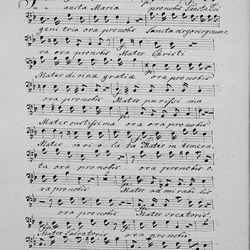 ancta Maria ora pronobis Sancta Dei
genitrix ora pronobis Sancta virgo virginum,
ora ora pronobis Mater Christi
Mater divinæ gratiæ ora pronobis
ora pronobis Mater purissima
Mater castissima ora ora pronobis
Mater inviolata Mater intemera
ta ora pronobis ora pronobis
ra pronobis Mater admirabilis
ora pronobis Mater creatoris
Mater salvatoris ora ora pronobis